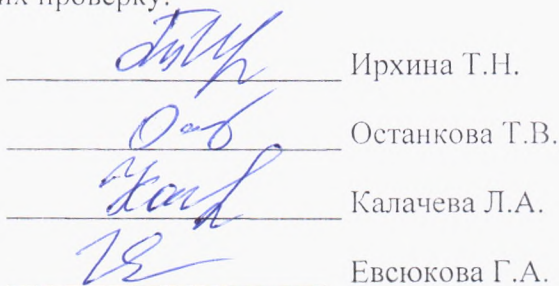 их проверку:
Ирхина Т.Н.
Останкова Т.В.
Калачева Л.А.
Евсюкова Г.А.